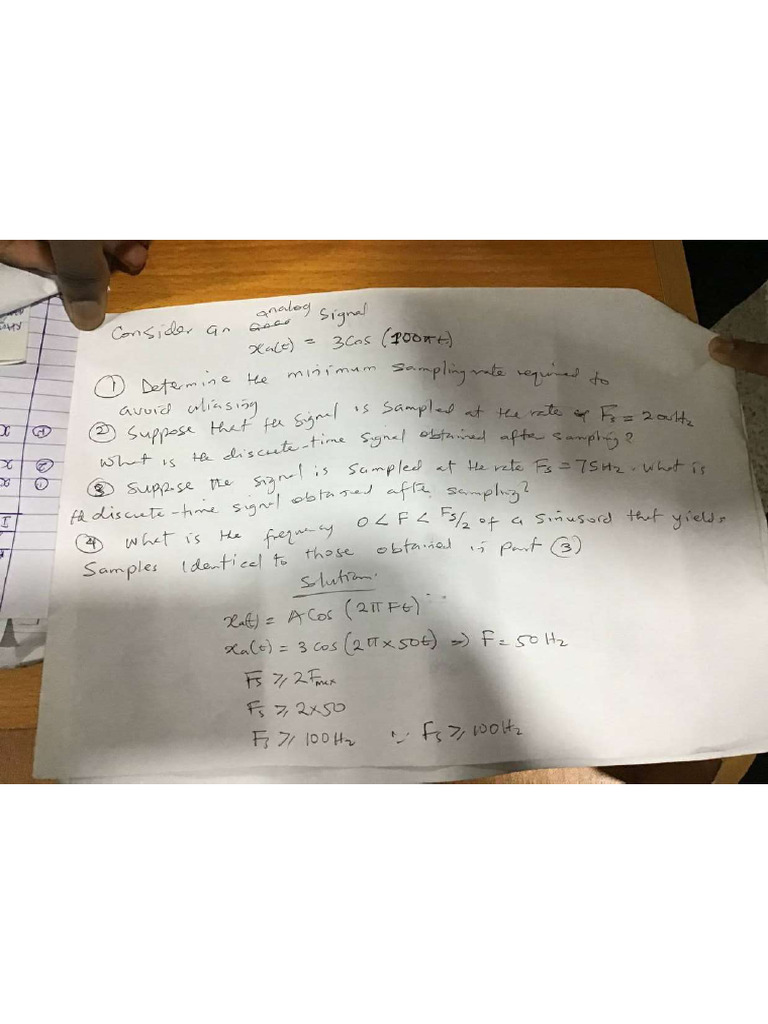 analog
Consider an signal
xa(t) = 3cos (100πt)
① Determine the minimum sampling rate required to
avoid aliasing
② Suppose that the signal is sampled at the rate of Fs = 200Hz
What is the discrete-time signal obtained after sampling?
③ Suppose the signal is sampled at the rate Fs = 75Hz. What is
the discrete-time signal obtained after sampling?
④ What is the frequency 0 < F < Fs/2 of a sinusoid that yields
Samples identical to those obtained in part ③)
Solution.
xa(t) = A Cos (2πFt)
xa(t) = 3 cos (2π×50t) => F = 50 Hz
Fs ≥ 2Fmax
Fs ≥ 2×50
Fs ≥ 100Hz ∵ Fs ≥ 100Hz